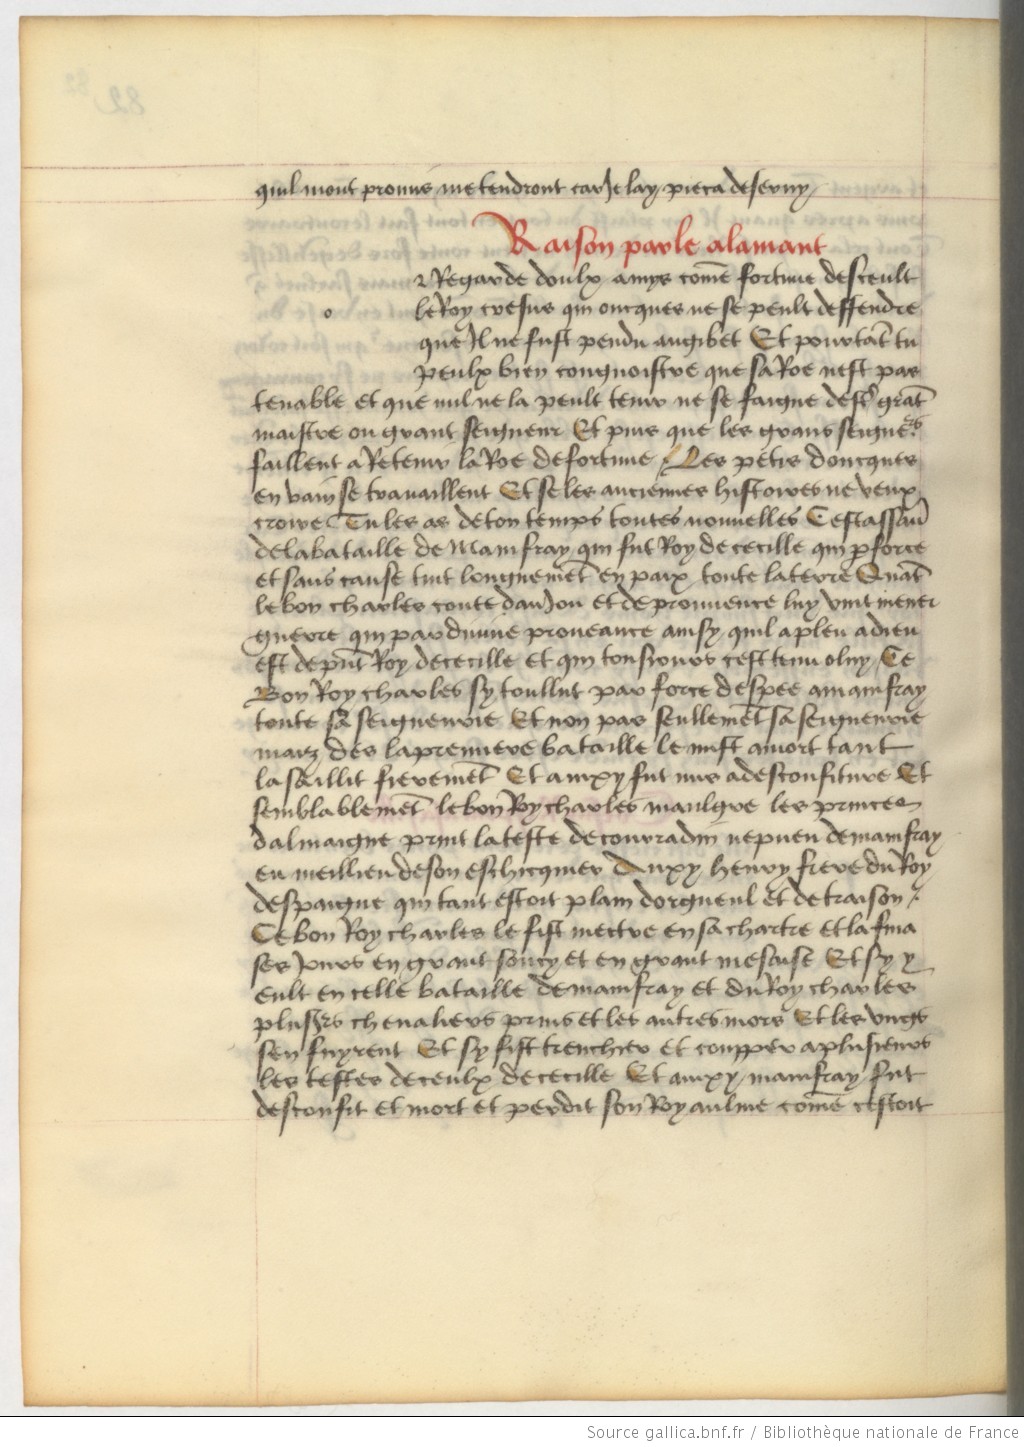 quil mont promis me tendront car Je lay pieca deseruy
Raison parle alamant
Regarde doulx amys come fortune desceult
le Roy cresus qui oncques ne se peult deffendre
que Il ne fust pendu augibet Et pourtat tu
peulx bien congnoistre que sa Roe nest pas
tenable et que nul ne la peult tenir ne se faigne grat
maistre ou grant seigneur Et puis que les grans seigneᵉʳˢ
faillent a Retenir la Roe de fortune Les petis doncques
en vain se trauaillent Et se les anciennes histoires ne veux
croire Tu les as de ton temps toutes nouuelles Cest assau
de la bataille de Mainfray qui fut Roy de cecille qui p force
et sans cause tint longuemet en paix toute la terre Quat
le bon charles conte danJou et de prouuence luy vint mener
guerre qui par diuine proueance ainsy quil a pleu a dieu
est de pnt Roy de cecille et qui tousiours cest tenu o luy Ce
Bon Roy charles sy toullut par force despee a mainfray
toute sa seigneurie Et non pas seullemet sa seigneurie
maiz des la premiere bataille le mist a mort tant
la saillit fierement Et ainxy fut mis a desconfiture Et
semblablemet le bon Roy charles maulgre les princes
dalmaigne print la teste de courradin nepueu de mainfray
en meillieu de son eschicquier Auxy henry frere du Roy
despaigne qui tant estoit plain dorgueul et de traison
Ce bon Roy charles le fist mectre en sa chartre et la fina
ses Jours en grant soucy et en grant mesaise Et sy y
eult en celle bataille de mainfray et du Roy charles
plusrs cheualiers prins et les autres mors Et les vngs
sen fuyrent Et sy fist trenchier et coupper a plusieurs
les testes de ceulx de cecille Et ainxy mainfray fut
desconfit et mort et perdit son Royaulme come cestoit
Source gallica.bnf.fr / Bibliothèque nationale de France